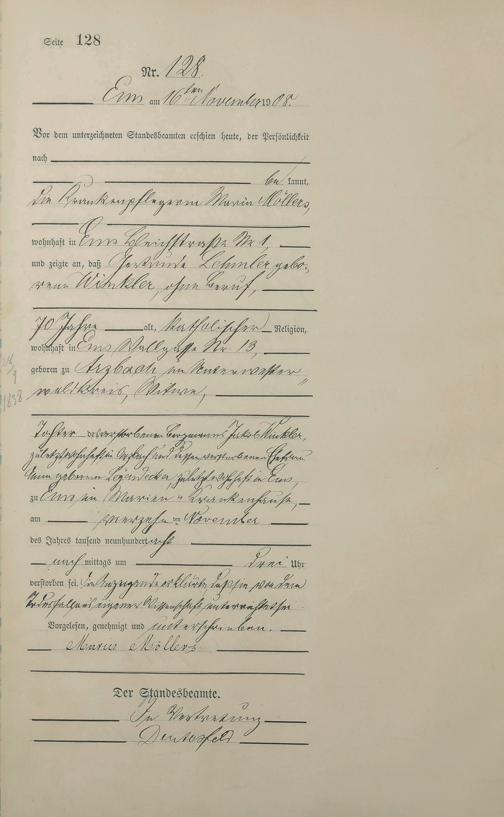 Seite 128
Nr. 128.
Ems am 16ten November 1908.
Vor dem unterzeichneten Standesbeamten erschien heute, der Persönlichkeit
nach
bekannt,
die Krankenpflegerin Maria Möllers,
wohnhaft in Ems Bleichstraße Nr 1,
und zeigte an, daß Gertrude Lehmler gebo-
rene Winkler, ohne Beruf,
70 Jahre alt, katholischer Religion,
wohnhaft in Ems Wallgasse Nr 13,
geboren zu Arzbach im Unterwester-
waldkreis, Witwe,
Tochter des verstorbenen Bergmanns Jakob Winkler,
zuletzt wohnhaft in Arzbach und dessen verstorbenen Ehefrau
geborenen zuletzt wohnhaft in Ems,
zu Ems im Marien-Krankenhause,
am vierzehn-November
des Jahres tausend neunhundert acht
nach mittags um drei Uhr
verstorben sei. Die Anzeigende erklärte, daß sie von dem
Todesfalle aus eigener Wissenschaft unterrichtet sei.
Vorgelesen, genehmigt und unterschrieben.
Maria Möllers
Der Standesbeamte.
In Vertretung